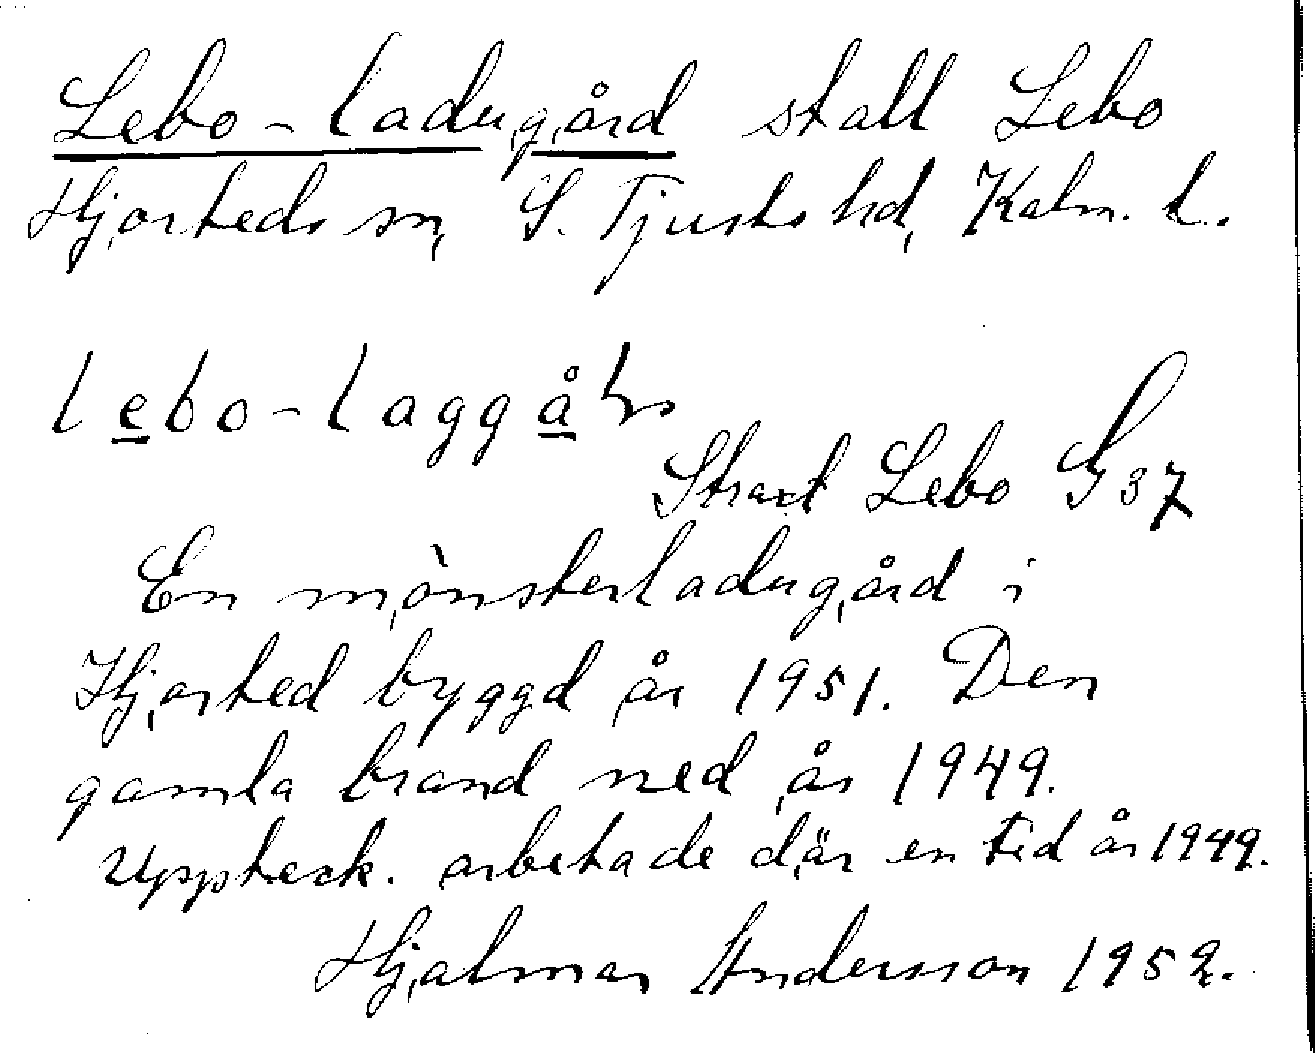 Lebo-ladugård stall Lebo
Hjorteds sn, S. Tjusts hd, Kalm. l.
lebo-laggå
Strax Lebo G 37
En mönsterladugård i
Hjorted byggd år 1951. Den
gamla brand ned år 1949.
Uppteck. arbetade där en tid år 1949.
Hjalmar Andersson 1952.